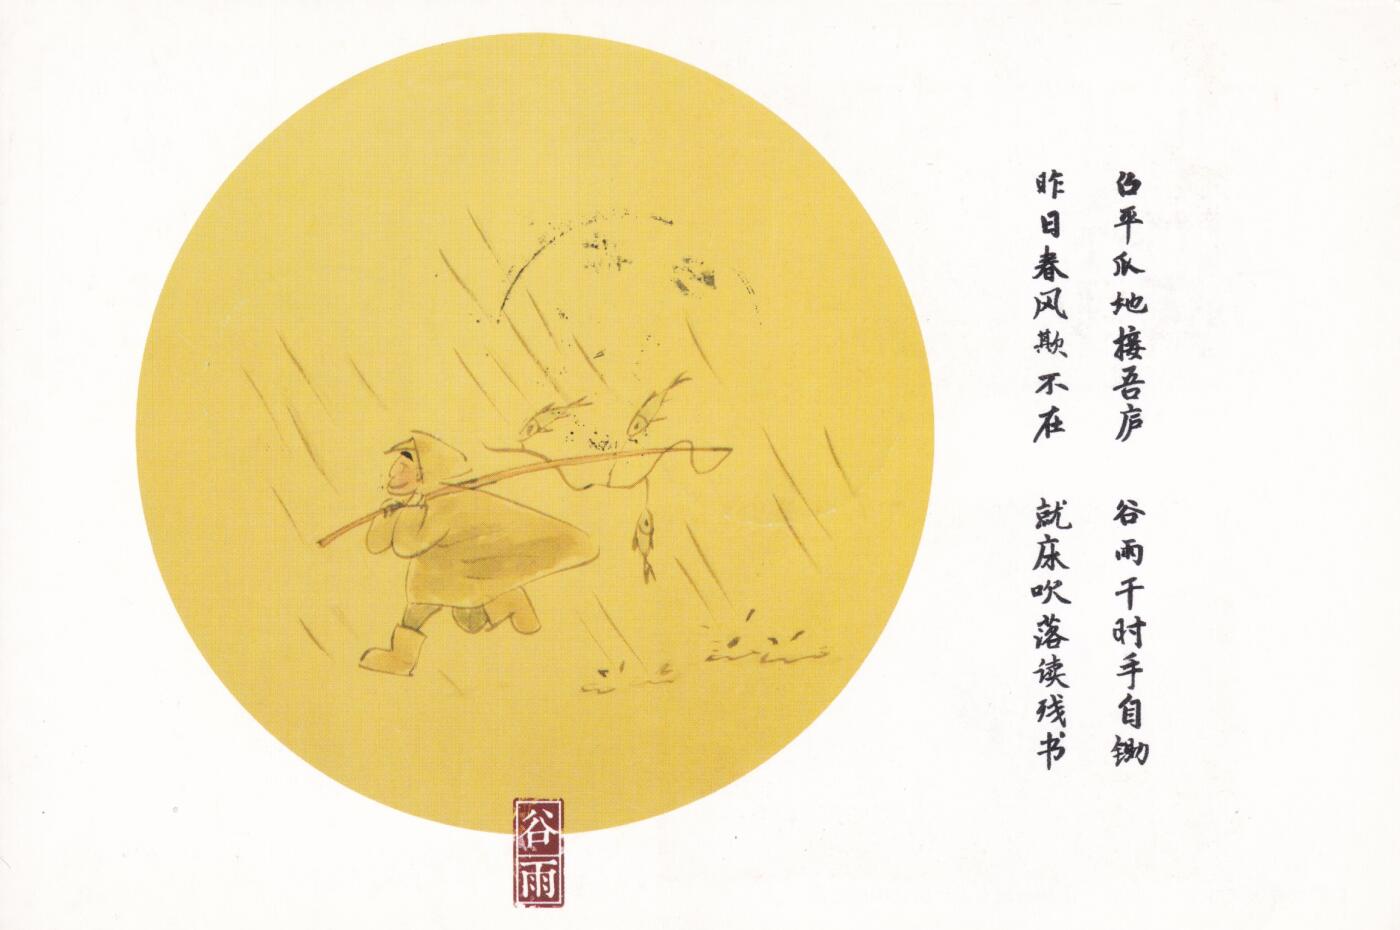 召平瓜地接吾庐
谷雨干时手自锄
昨日春风欺不在
就床吹落读残书
谷雨